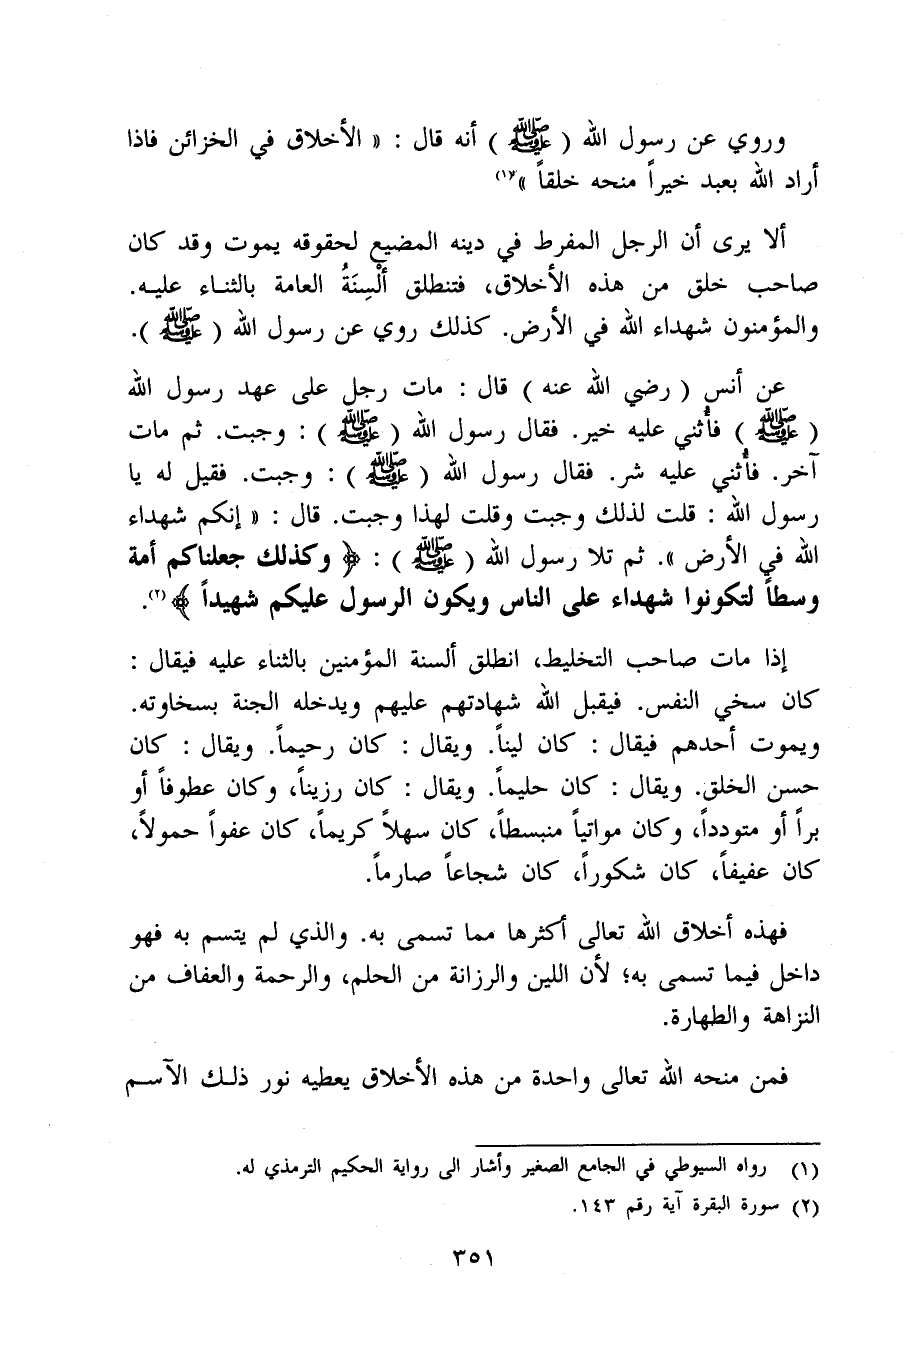 وروي عن رسول الله ( ﷺ ) أنه قال : « الأخلاق في الخزائن فاذا
أراد الله بعبد خيراً منحه خلقاً »(١)
ألا يرى أن الرجل المفرط في دينه المضيع لحقوقه يموت وقد كان
صاحب خلق من هذه الأخلاق، فتنطلق ألْسِنَةُ العامة بالثناء عليه.
والمؤمنون شهداء الله في الأرض. كذلك روي عن رسول الله ( ﷺ ).
عن أنس ( رضي الله عنه ) قال : مات رجل على عهد رسول الله
( ﷺ ) فأُثني عليه خير. فقال رسول الله ( ﷺ ) : وجبت. ثم مات
آخر. فأُثني عليه شر. فقال رسول الله ( ﷺ ) : وجبت. فقيل له يا
رسول الله : قلت لذلك وجبت وقلت لهذا وجبت. قال : « إنكم شهداء
الله في الأرض ». ثم تلا رسول الله ( ﷺ ) : ﴿ وكذلك جعلناكم أمة
وسطاً لتكونوا شهداء على الناس ويكون الرسول عليكم شهيداً ﴾(٢).
إذا مات صاحب التخليط، انطلق ألسنة المؤمنين بالثناء عليه فيقال :
كان سخي النفس. فيقبل الله شهادتهم عليهم ويدخله الجنة بسخاوته.
ويموت أحدهم فيقال : كان ليناً. ويقال : كان رحيماً. ويقال : كان
حسن الخلق. ويقال : كان حليماً. ويقال : كان رزيناً، وكان عطوفاً أو
براً أو متودداً، وكان مواتياً منبسطاً، كان سهلاً كريماً، كان عفواً حمولاً،
كان عفيفاً، كان شكوراً، كان شجاعاً صارماً.
فهذه أخلاق الله تعالى أكثرها مما تسمى به. والذي لم يتسم به فهو
داخل فيما تسمى به؛ لأن اللين والرزانة من الحلم، والرحمة والعفاف من
النزاهة والطهارة.
فمن منحه الله تعالى واحدة من هذه الأخلاق يعطيه نور ذلك الآسم
(١) رواه السيوطي في الجامع الصغير وأشار الى رواية الحكيم الترمذي له.
(٢) سورة البقرة آية رقم ١٤٣.
٣٥١